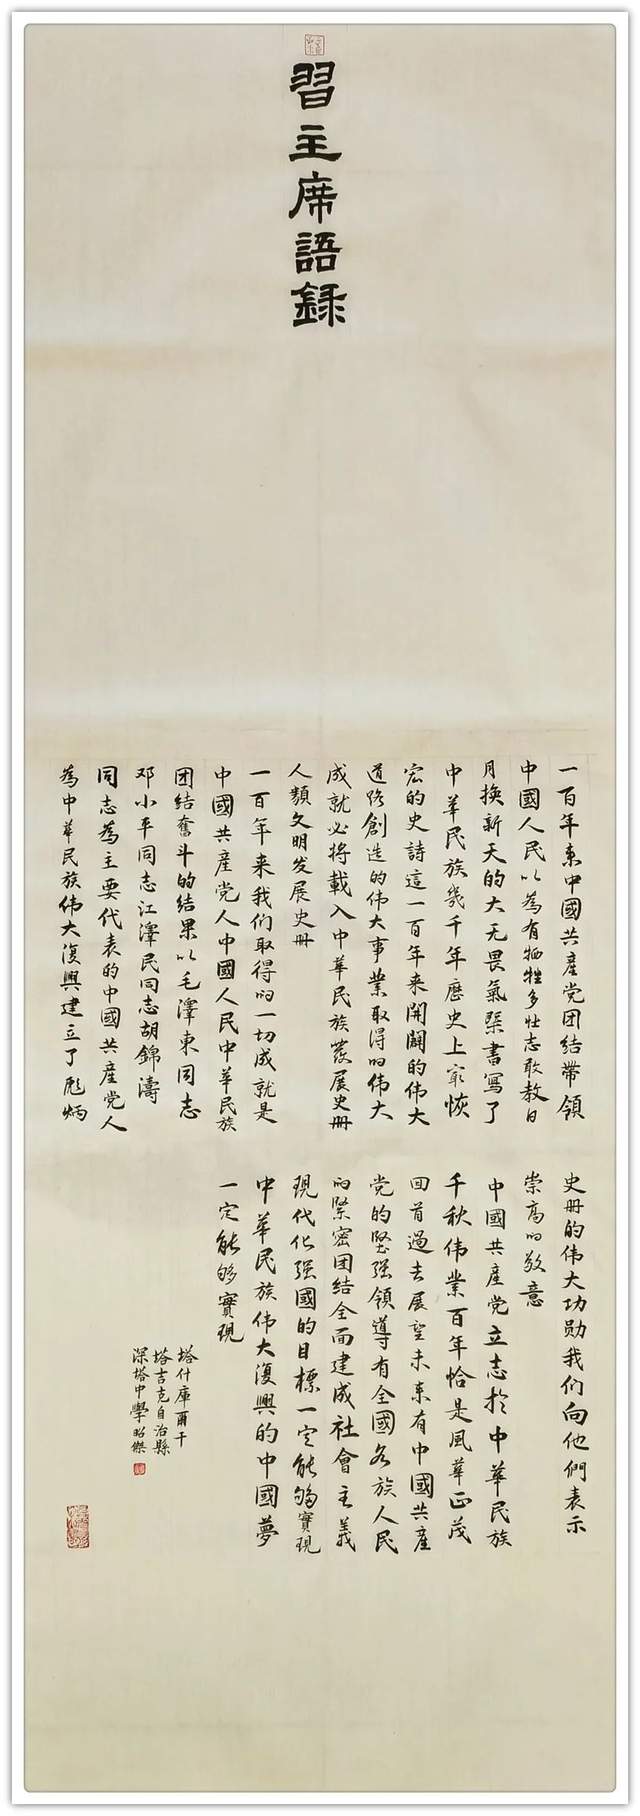 習主席語録
一百年来中國共產党团结带領
中國人民以為有牺牲多壮志敢教日
月换新天的大无畏氣槩書寫了
中華民族幾千年歷史上最恢
宏的史詩這一百年来開闢的伟大
道路創造的伟大事業取得的伟大
成就必将載入中華民族發展史册
人類文明发展史册
一百年来我们取得的一切成就是
中國共產党人中國人民中華民族
团结奮斗的结果以毛澤東同志
邓小平同志江澤民同志胡錦濤
同志為主要代表的中國共產党人
為中華民族伟大復興建立了彪炳
史册的伟大功勋我们向他們表示
崇高的敬意
中國共產党立志於中華民族
千秋伟業百年恰是風華正茂
回首過去展望未来有中國共產
党的堅强領導有全國各族人民
的緊密团结全面建成社會主義
現代化强國的目標一定能夠實現
中華民族伟大復興的中國夢
一定能够實現
塔什庫爾干
塔吉克自治縣
深塔中學昭傑